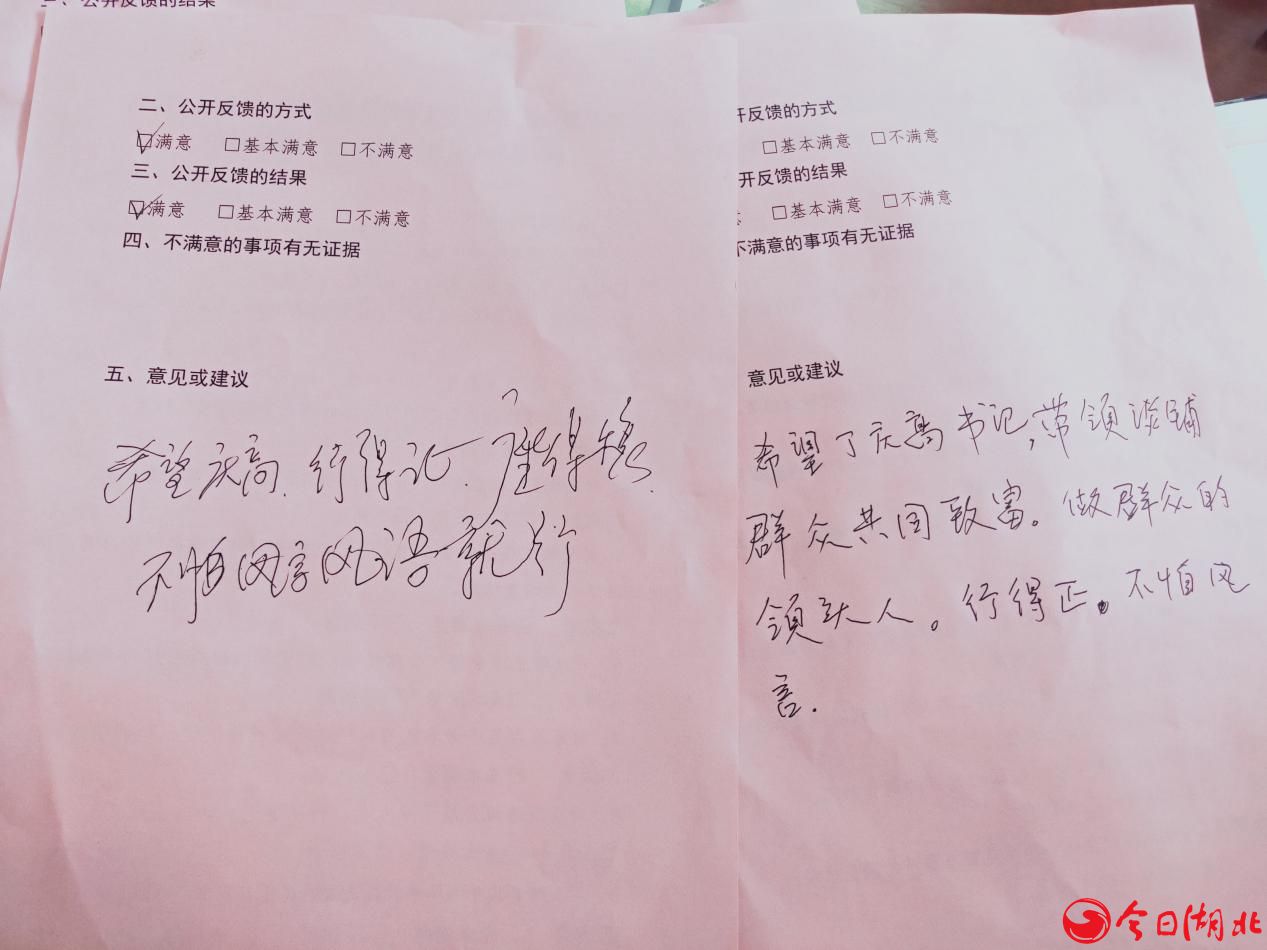 三、公开反馈的结果
二、公开反馈的方式
☑满意 □基本满意 □不满意
三、公开反馈的结果
☑满意 □基本满意 □不满意
四、不满意的事项有无证据
五、意见或建议
希望庆高.行得证.座得稳.
不怕风言风语就行
开反馈的方式
□基本满意 □不满意
开反馈的结果
意 □基本满意 □不满意
不满意的事项有无证据
意见或建议
希望丁庆高书记,带领谈铺
群众共同致富。做群众的
领头人。行得正。不怕风
言.
今日湖北